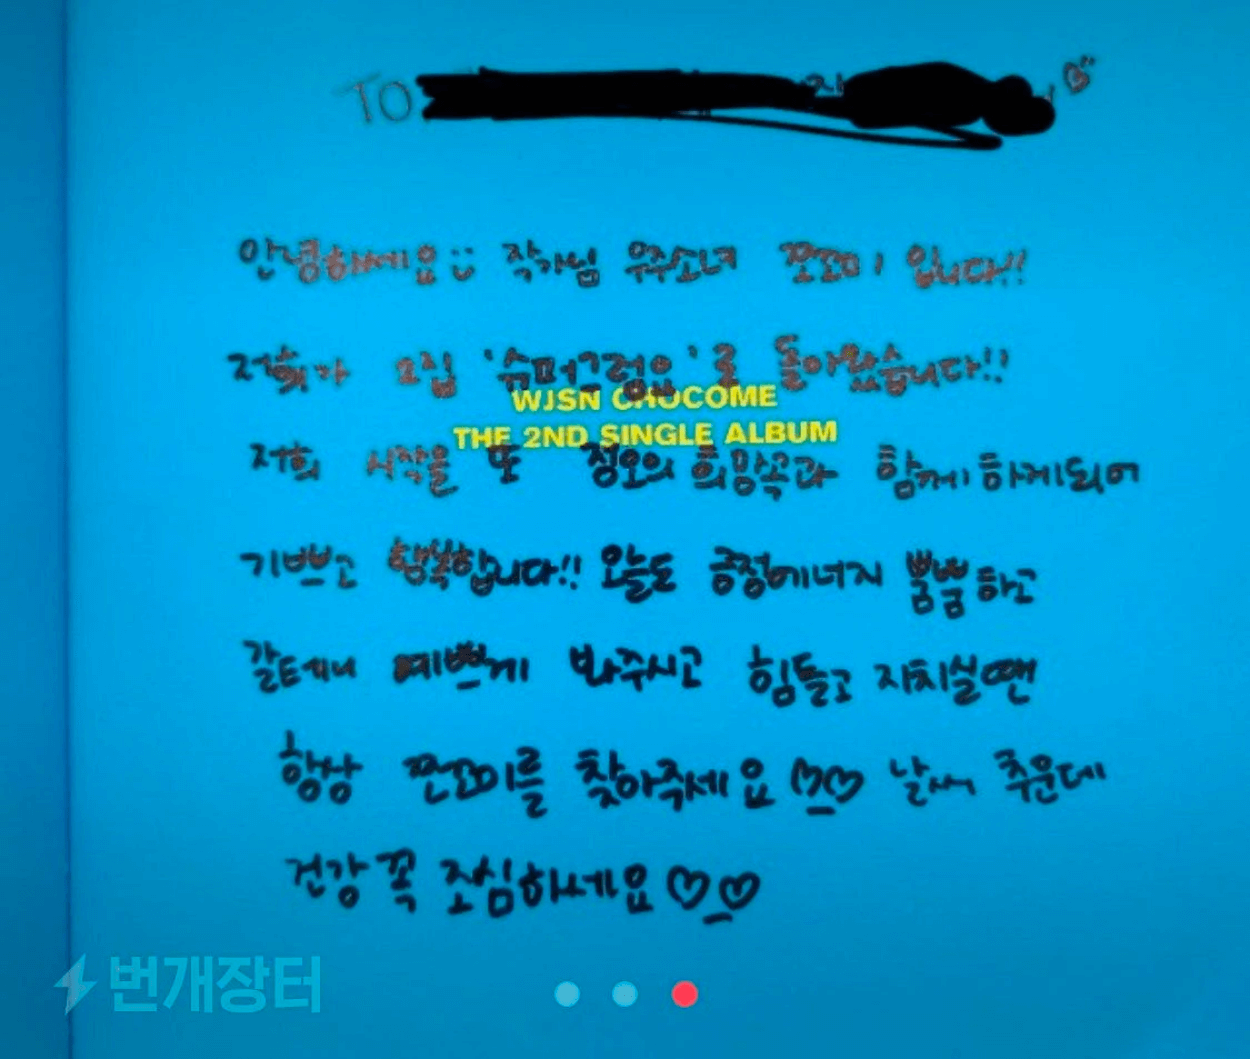 TO
안녕하세요 작가님 우주소녀 쪼꼬미 입니다!!
저희가 2집 '슈퍼그럼요'로 돌아왔습니다!!
WJSN CHOCOME
THE 2ND SINGLE ALBUM
저희 시작을 또 정오의 희망곡과 함께하게되어
기쁘고 행복합니다!! 오늘도 긍정에너지 뿜뿜하고
갈테니 예쁘게 봐주시고 힘들고 지치실땐
항상 쪼꼬미를 찾아주세요♡♡ 날씨 추운데
건강 꼭 조심하세요♡♡
번개장터